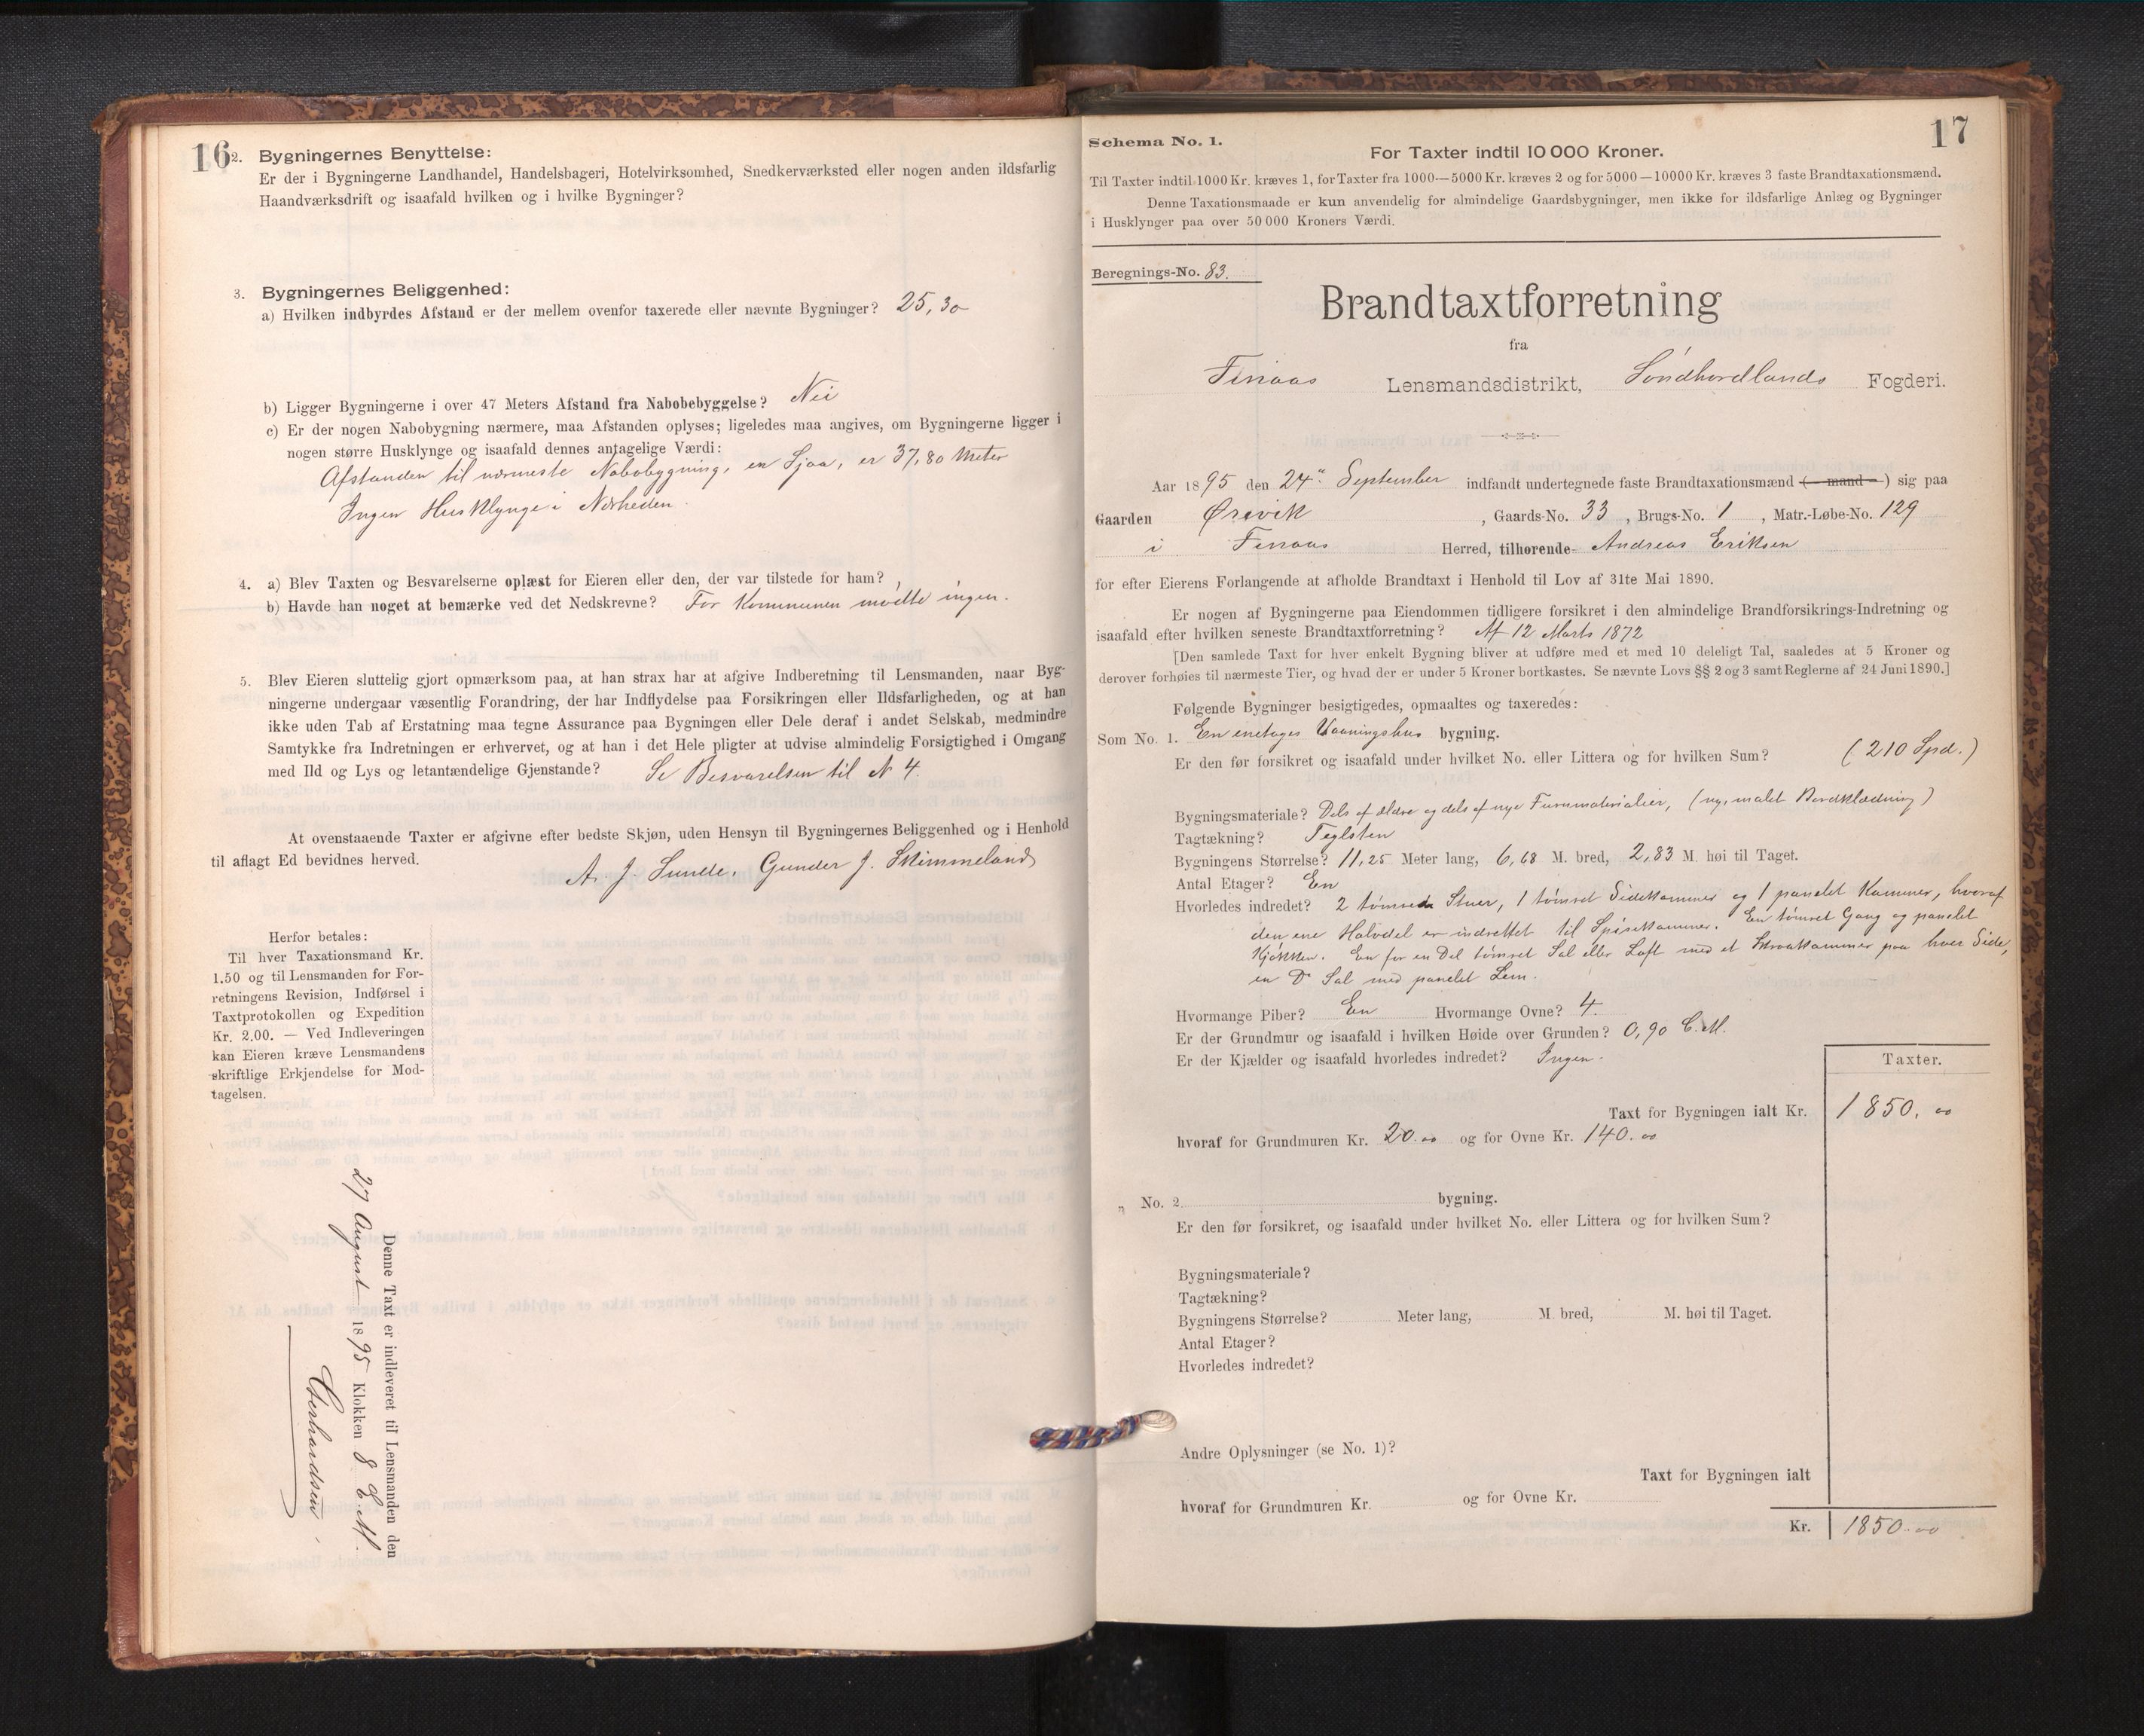 16
2. Bygningernes Benyttelse:
Er der i Bygningerne Landhandel, Handelsbageri, Hotelvirksomhed, Snedkerværksted eller nogen anden ildsfarlig
Haandværksdrift og isaafald hvilken og i hvilke Bygninger?
3. Bygningernes Beliggenhed:
a) Hvilken indbyrdes Afstand er der mellem ovenfor taxerede eller nævnte Bygninger? 25,30
b) Ligger Bygningerne i over 47 Meters Afstand fra Nabobebyggelse? Nei
c) Er der nogen Nabobygning nærmere, maa Afstanden oplyses; ligeledes maa angives, om Bygningerne ligger i
nogen større Husklynge og isaafald dennes antagelige Værdi:
Afstanden til nærmeste Nabobygning, en Sjaa, er 37,80 Meter
Ingen Husklynge i Nærheden.
4. a) Blev Taxten og Besvarelserne oplæst for Eieren eller den, der var tilstede for ham?
b) Havde han noget at bemærke ved det Nedskrevne? For Kommunen mødte ingen.
5. Blev Eieren sluttelig gjort opmærksom paa, at han strax har at afgive Indberetning til Lensmanden, naar Byg-
ningerne undergaar væsentlig Forandring, der har Indflydelse paa Forsikringen eller Ildsfarligheden, og at han
ikke uden Tab af Erstatning maa tegne Assurance paa Bygningen eller Dele deraf i andet Selskab, medmindre
Samtykke fra Indretningen er erhvervet, og at han i det Hele pligter at udvise almindelig Forsigtighed i Omgang
med Ild og Lys og letantændelige Gjenstande? Se Besvarelsen til N 4.
At ovenstaaende Taxter er afgivne efter bedste Skjøn, uden Hensyn til Bygningernes Beliggenhed og i Henhold
til aflagt Ed bevidnes herved.
A. J. Sunde. Gunder J. Skimmeland
Herfor betales:
Til hver Taxationsmand Kr.
1.50 og til Lensmanden for For-
retningens Revision, Indførsel i
Taxtprotokollen og Expedition
Kr. 2.00. — Ved Indleveringen
kan Eieren kræve Lensmandens
skriftlige Erkjendelse for Mod-
tagelsen.
Denne Taxt er indleveret til Lensmanden den
27 August 1895 Klokken 8 E.M.
Gerhardsen
17
Schema No. 1.
For Taxter indtil 10 000 Kroner.
Til Taxter indtil 1000 Kr. kræves 1, for Taxter fra 1000—5000 Kr. kræves 2 og for 5000—10000 Kr. kræves 3 faste Brandtaxationsmænd.
Denne Taxationsmaade er kun anvendelig for almindelige Gaardsbygninger, men ikke for ildsfarlige Anlæg og Bygninger
i Husklynger paa over 50 000 Kroners Værdi.
Beregnings-No. 83.
Brandtaxtforretning
fra
Finaas Lensmandsdistrikt, Søndhordlands Fogderi.
Aar 1895 den 24de September indfandt undertegnede faste Brandtaxationsmænd (— mand —) sig paa
Gaarden Ørevik , Gaards-No. 33 , Brugs-No. 1 , Matr.-Løbe-No. 129
i Finaas Herred, tilhørende Andreas Eriksen
for efter Eierens Forlangende at afholde Brandtaxt i Henhold til Lov af 31te Mai 1890.
Er nogen af Bygningerne paa Eiendommen tidligere forsikret i den almindelige Brandforsikrings-Indretning og
isaafald efter hvilken seneste Brandtaxtforretning? Af 12 Marts 1872
[Den samlede Taxt for hver enkelt Bygning bliver at udføre med et med 10 deleligt Tal, saaledes at 5 Kroner og
derover forhøies til nærmeste Tier, og hvad der er under 5 Kroner bortkastes. Se nævnte Lovs §§ 2 og 3 samt Reglerne af 24 Juni 1890.]
Følgende Bygninger besigtigedes, opmaaltes og taxeredes:
Som No. 1. En enetages Vaaningshus bygning.
Er den før forsikret og isaafald under hvilket No. eller Littera og for hvilken Sum? (210 Spd.)
Bygningsmateriale? Dels af ældre og dels af nye Furumaterialier, (ny, malet Bordklædning)
Tagtækning? Teglsten
Bygningens Størrelse? 11,25 Meter lang, 6,68 M. bred, 2,83 M. høi til Taget.
Antal Etager? En
Hvorledes indredet? 2 tømrede Stuer, 1 tømret Sidekammer og 1 panelet Kammer, hvoraf
den ene Halvdel er indrettet til Spisekammer. En tømret Gang og panelet
Kjøkken. En for en Del tømret Sal eller Loft med et Skraakammer paa hver Side,
en Do Sal med panelet Lem.
Hvormange Piber? En Hvormange Ovne? 4.
Er der Grundmur og isaafald i hvilken Høide over Grunden? 0,90 C.M.
Er der Kjælder og isaafald hvorledes indredet? Ingen.
Taxter.
Taxt for Bygningen ialt Kr. 1850.00
hvoraf for Grundmuren Kr. 20.00 og for Ovne Kr. 140.00
" No. 2 bygning.
Er den før forsikret, og isaafald under hvilket No. eller Littera og for hvilken Sum?
Bygningsmateriale?
Tagtækning?
Bygningens Størrelse? Meter lang, M. bred, M. høi til Taget.
Antal Etager?
Hvorledes indredet?
Andre Oplysninger (se No. 1)?
Taxt for Bygningen ialt
hvoraf for Grundmuren Kr. og for Ovne Kr.
Kr. 1850.00